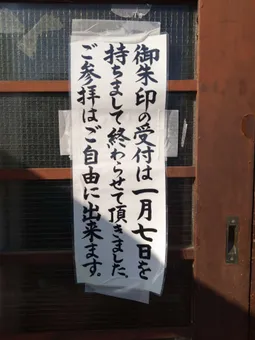 御朱印の受付は一月七日を
持ちまして終わらせて頂きました。
ご参拝はご自由に出来ます。